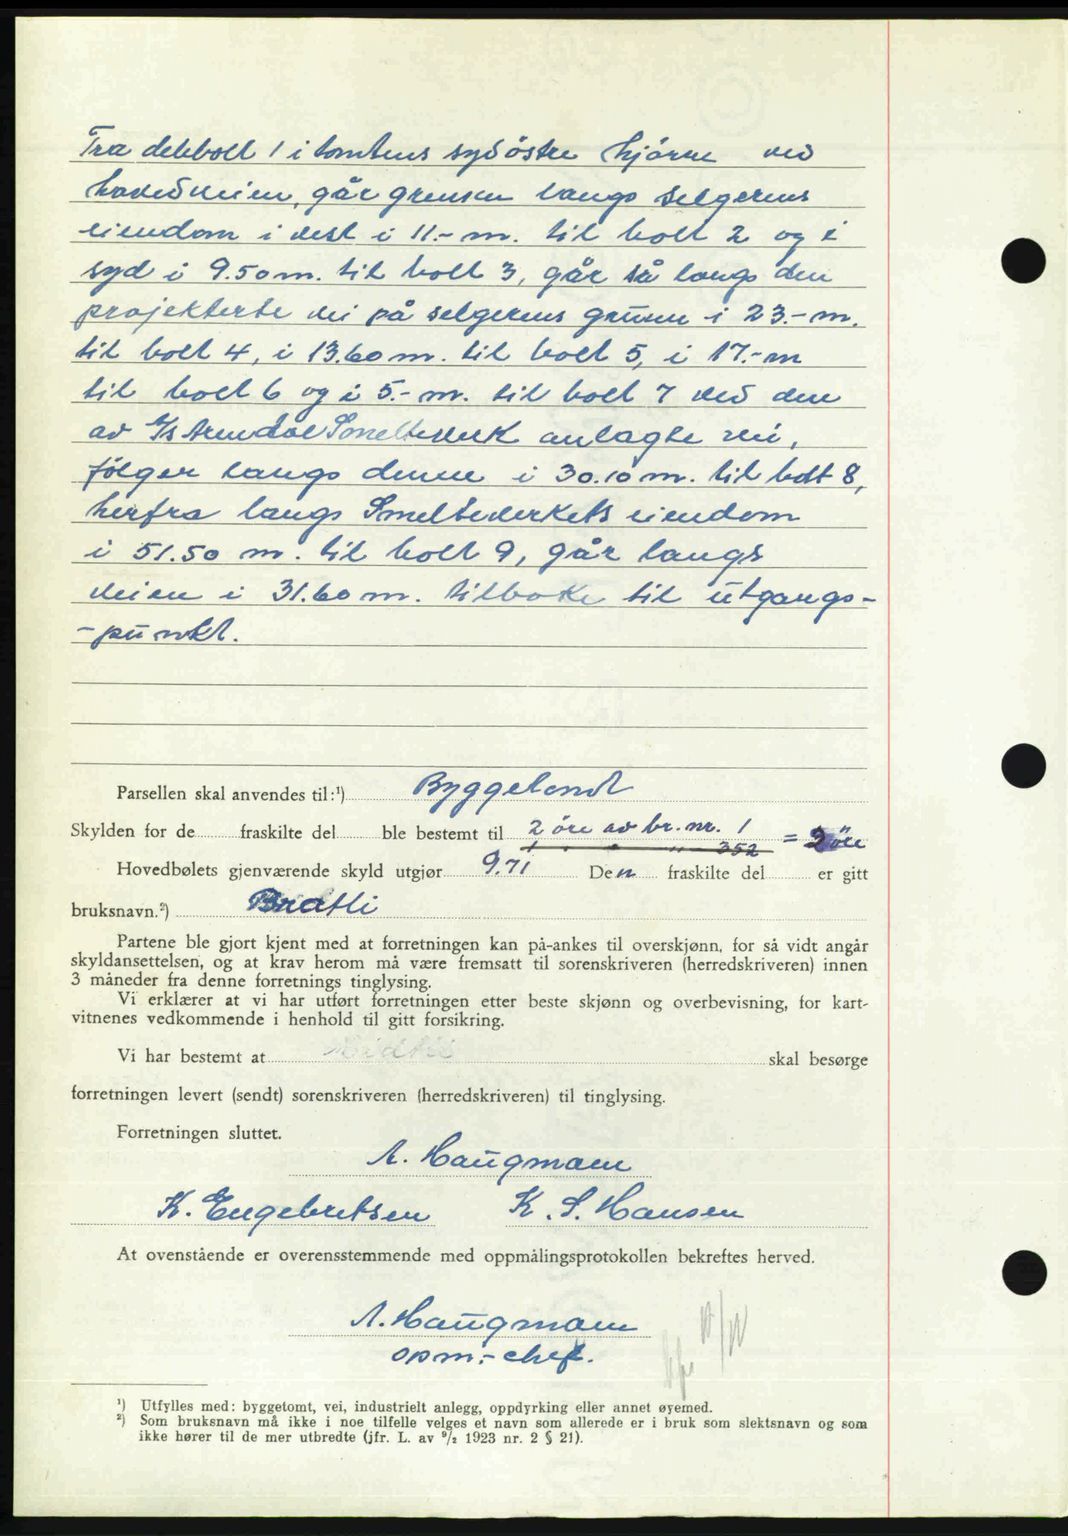 Fra delebolt 1 i tomtens sydöstre hjörne ved
hovedveien, går grensen langs selgerens
eiendom i vest i 11.- m. til bolt 2 og i
syd i 9.50 m. til bolt 3, går så langs den
projekterte vei på selgerens grunn i 23.- m.
til bolt 4, i 13.60 m. til bolt 5, i 17.- m
til bolt 6 og i 5.- m. til bolt 7 ved den
av A/s Arendal Smelteverk anlagte vei,
følger langs denne i 30.10 m. til bolt 8,
herfra langs Smelteverkets eiendom
i 51.50 m. til bolt 9, går langs
veien i 31.60 m. tilbake til utgangs-
-punkt.
Parsellen skal anvendes til:¹) Byggetomt
Skylden for de fraskilte del ble bestemt til 2 öre av br. nr. 1 = 2 öre
1 " " " 352
Hovedbølets gjenværende skyld utgjør 9.71 Den fraskilte del er gitt
bruksnavn.²) Bratli
Partene ble gjort kjent med at forretningen kan på-ankes til overskjønn, for så vidt angår
skyldansettelsen, og at krav herom må være fremsatt til sorenskriveren (herredskriveren) innen
3 måneder fra denne forretnings tinglysing.
Vi erklærer at vi har utført forretningen etter beste skjønn og overbevisning, for kart-
vitnenes vedkommende i henhold til gitt forsikring.
Vi har bestemt at skal besørge
forretningen levert (sendt) sorenskriveren (herredskriveren) til tinglysing.
Forretningen sluttet.
A. Haugmann
K. Engebretsen K. S. Hansen
At ovenstående er overensstemmende med oppmålingsprotokollen bekreftes herved.
A. Haugmann
opm.- chef.
¹) Utfylles med: byggetomt, vei, industrielt anlegg, oppdyrking eller annet øyemed.
²) Som bruksnavn må ikke i noe tilfelle velges et navn som allerede er i bruk som slektsnavn og som
ikke hører til de mer utbredte (jfr. L. av ⁹/₂ 1923 nr. 2 § 21).